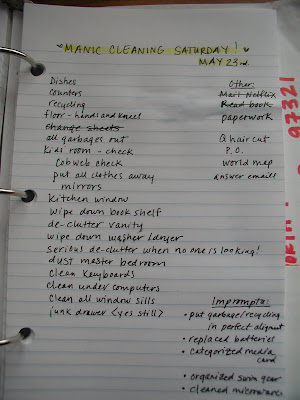 "MANIC CLEANING SATURDAY!"
MAY 23rd.
Dishes
counters
recycling
floor - hands and knees
change sheets
all garbages out
Kids room - check
cobweb check
put all clothes away
mirrors
Kitchen window
wipe down book shelf
de-clutter vanity
wipe down washer/dryer
serious de-clutter when no one is looking!
dust master bedroom
clean keyboards
clean under computers
clean all window sills
junk drawer <yes still?>
Other:
Mail Netflix
Read book
paperwork
Q haircut
P.O.
world map
answer emails
Impromptu:
• put garbage/recycling
in perfect alignment
• replaced batteries
• categorized media
card
• organized swim gear
• cleaned microwave
97321